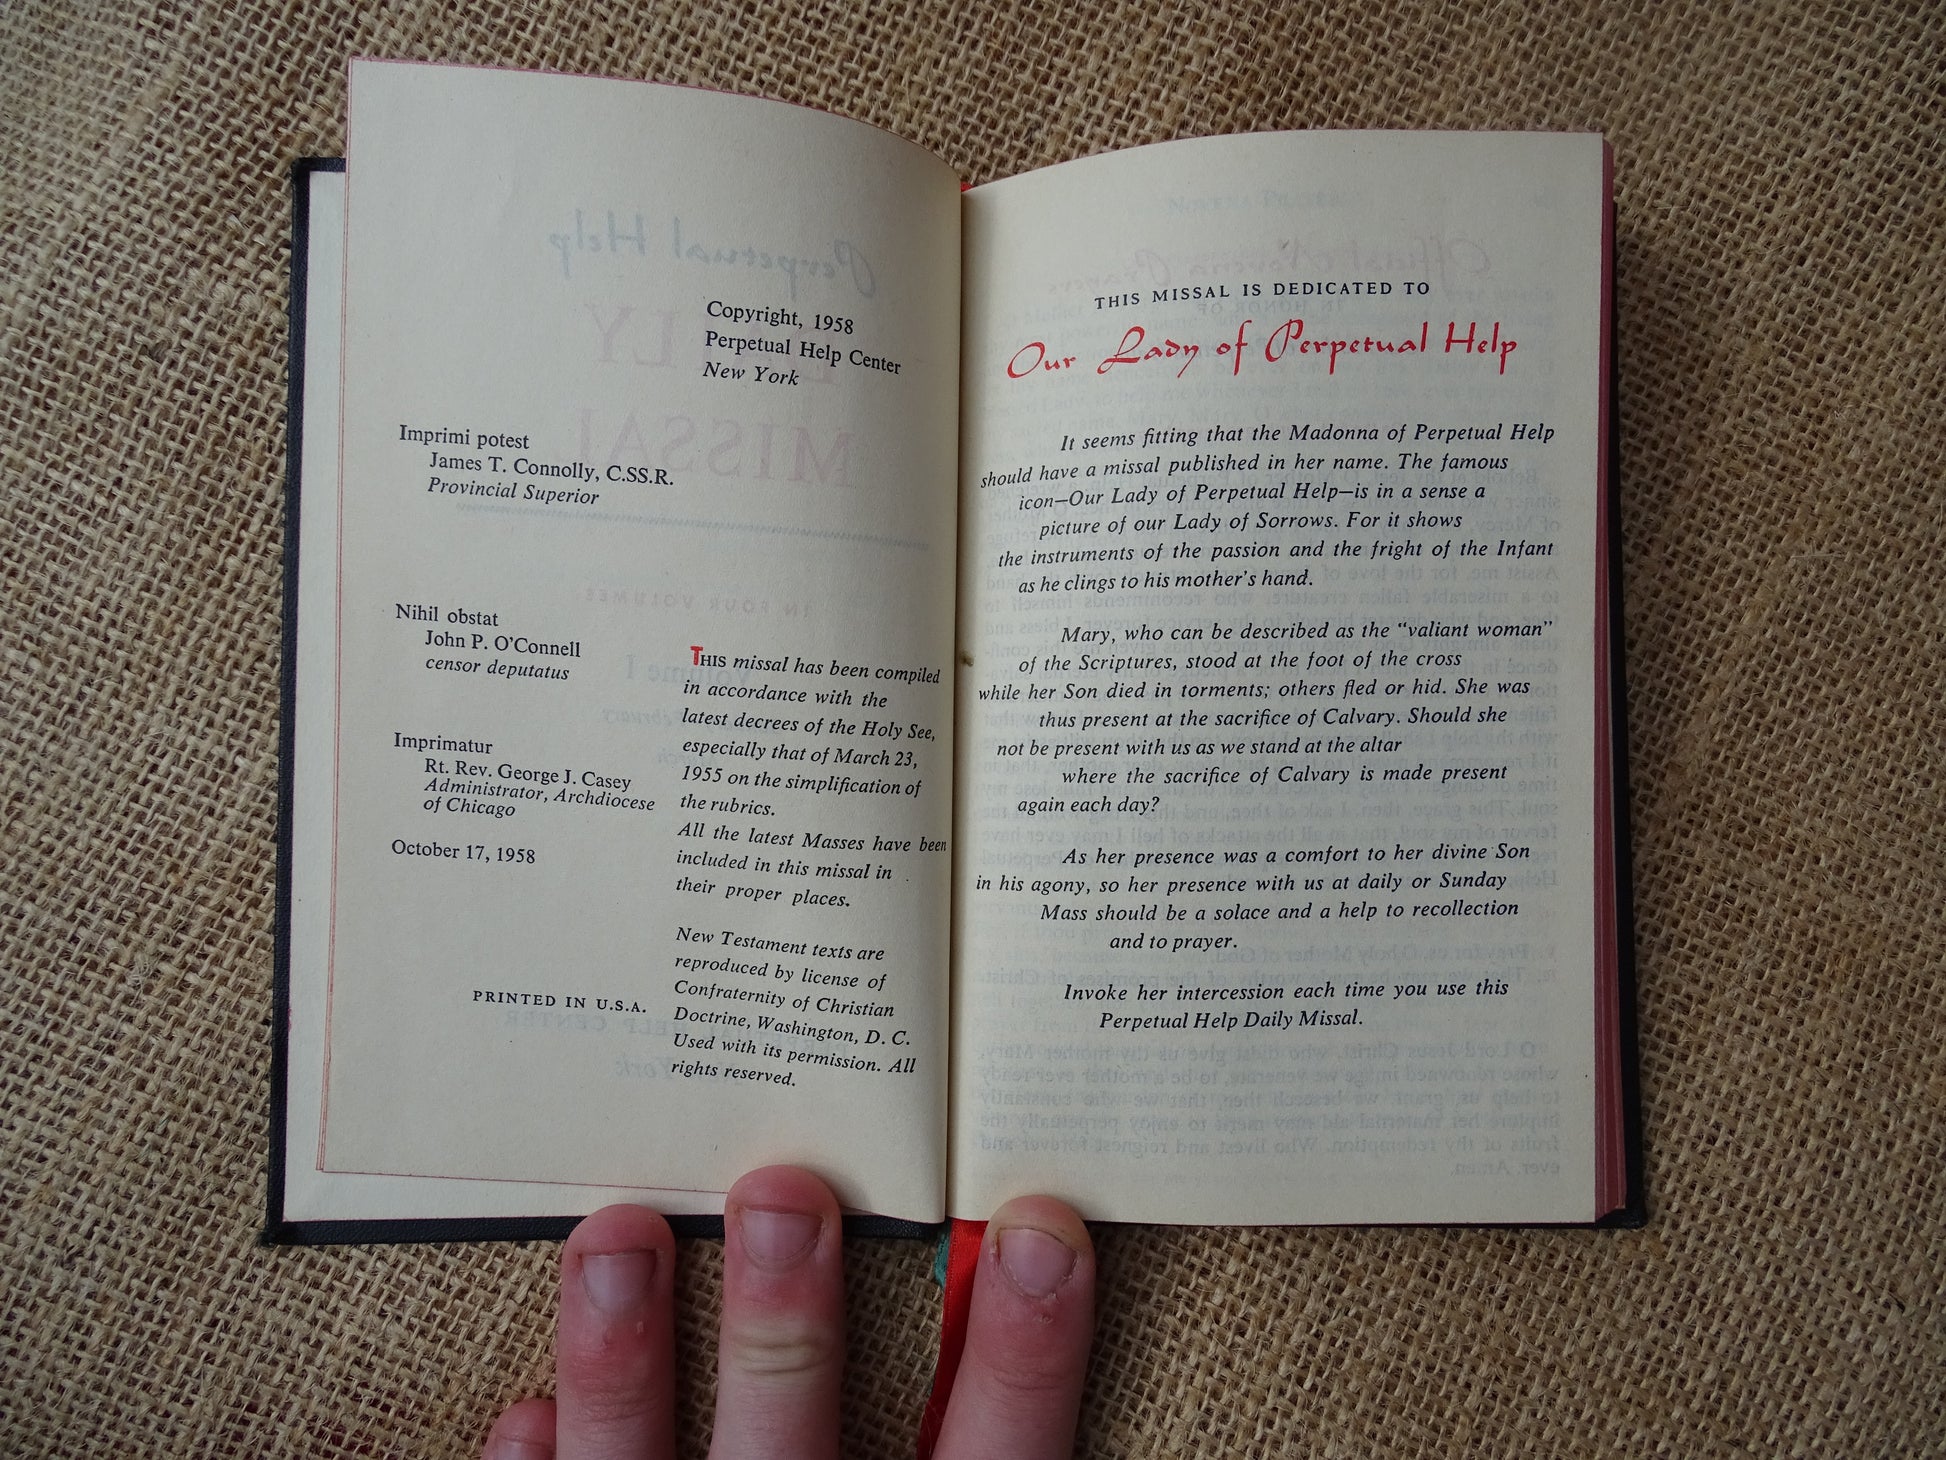 Copyright, 1958
Perpetual Help Center
New York
Imprimi potest
James T. Connolly, C.SS.R.
Provincial Superior
Nihil obstat
John P. O'Connell
censor deputatus
Imprimatur
Rt. Rev. George J. Casey
Administrator, Archdiocese
of Chicago
October 17, 1958
PRINTED IN U.S.A.
THIS missal has been compiled
in accordance with the
latest decrees of the Holy See,
especially that of March 23,
1955 on the simplification of
the rubrics.
All the latest Masses have been
included in this missal in
their proper places.
New Testament texts are
reproduced by license of
Confraternity of Christian
Doctrine, Washington, D. C.
Used with its permission. All
rights reserved.
THIS MISSAL IS DEDICATED TO
Our Lady of Perpetual Help
It seems fitting that the Madonna of Perpetual Help
should have a missal published in her name. The famous
icon—Our Lady of Perpetual Help—is in a sense a
picture of our Lady of Sorrows. For it shows
the instruments of the passion and the fright of the Infant
as he clings to his mother's hand.
Mary, who can be described as the "valiant woman"
of the Scriptures, stood at the foot of the cross
while her Son died in torments; others fled or hid. She was
thus present at the sacrifice of Calvary. Should she
not be present with us as we stand at the altar
where the sacrifice of Calvary is made present
again each day?
As her presence was a comfort to her divine Son
in his agony, so her presence with us at daily or Sunday
Mass should be a solace and a help to recollection
and to prayer.
Invoke her intercession each time you use this
Perpetual Help Daily Missal.